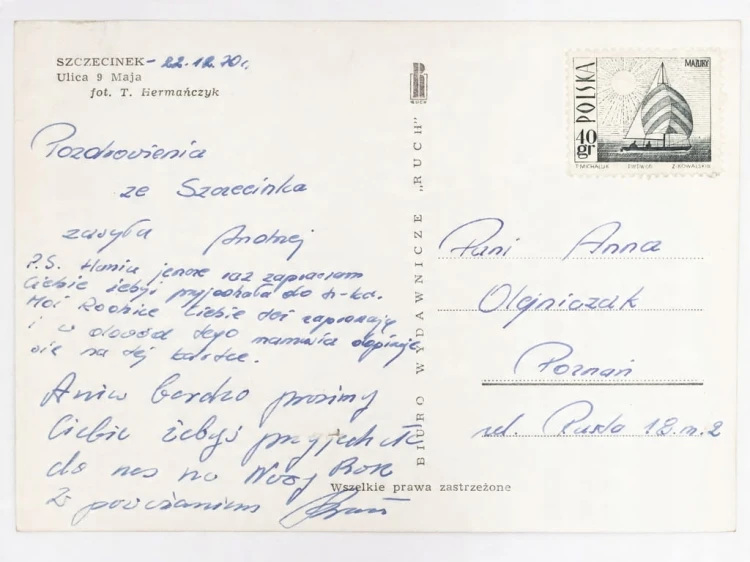 SZCZECINEK - 22.12.70r.
Ulica 9 Maja
fot. T. Hermańczyk
Pozdrowienia
ze Szczecinka
zasyła Andrzej
P.S. Haniu jeszcze raz zapraszam
Ciebie żebyś przyjechała do
Moi Rodzice Ciebie też zapraszają
i w dowód tego mamusia dopisuje
się na tej kartce.
Aniu bardzo prosimy
Ciebie żebyś przyjechała
do nas na Nowy Rok
Z poważaniem
RUCH
BIURO WYDAWNICZE „RUCH"
Wszelkie prawa zastrzeżone
POLSKA
MAZURY
40 gr
T. MICHALUK Z. KOWALSKI
Pani Anna
Olejniczak
Poznań
ul. 18 m. 2